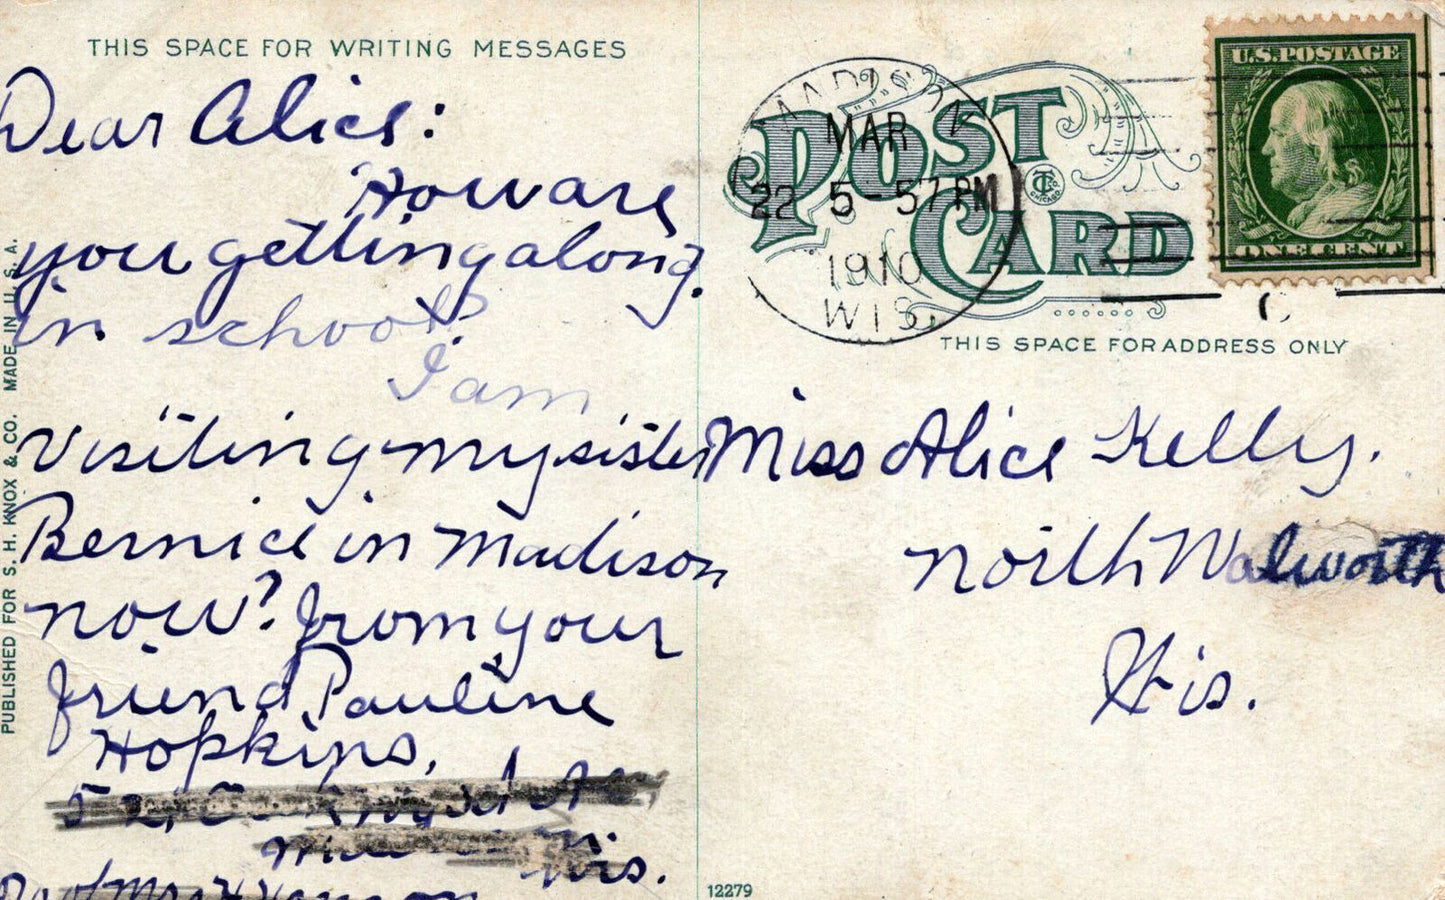 THIS SPACE FOR WRITING MESSAGES
Dear Alice:
How are
you getting along
in school?
I am
visiting my sister
Bernice in Madison
now? from your
friend Pauline
Hopkins,
Wis.
PUBLISHED FOR S. H. KNOX & CO. MADE IN U. S. A.
POST
CARD
CHICAGO
MADISON
MAR
22 5-57 PM
1910
WIS.
U.S. POSTAGE
ONE CENT
THIS SPACE FOR ADDRESS ONLY
Miss Alice Kelly.
North Walworth
Wis.
12279